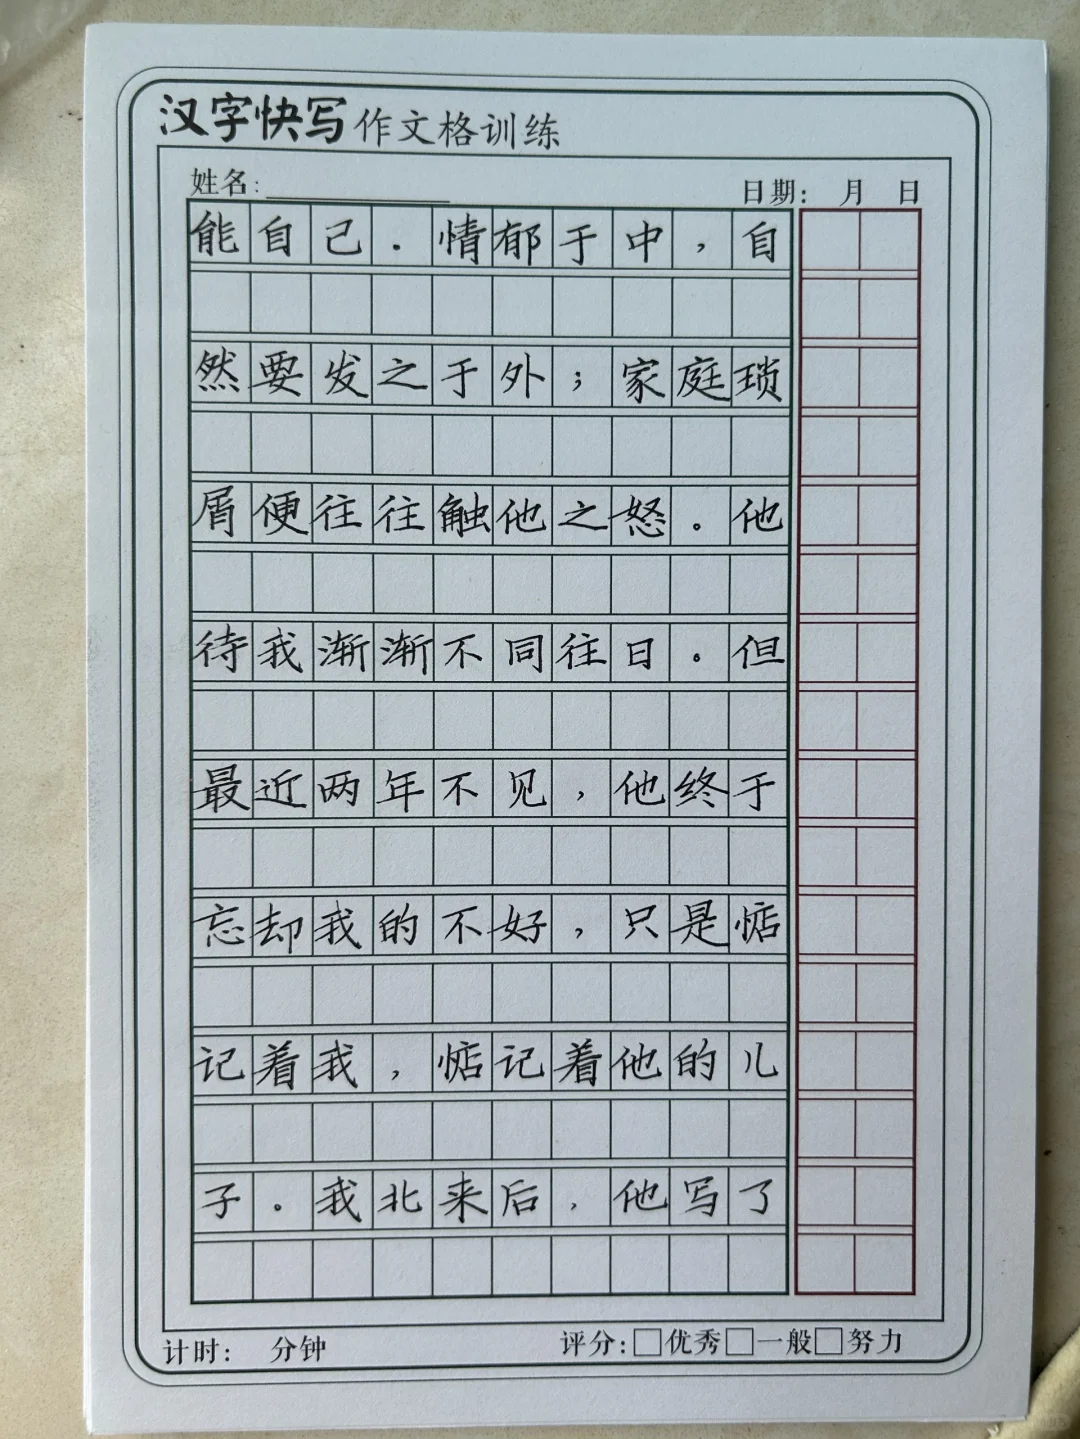 汉字快写作文格训练
姓名: 日期: 月 日
能自己．情郁于中，自
然要发之于外；家庭琐
屑便往往触他之怒。他
待我渐渐不同往日。但
最近两年不见，他终于
忘却我的不好，只是惦
记着我，惦记着他的儿
子。我北来后，他写了
计时: 分钟 评分:□优秀□一般□努力